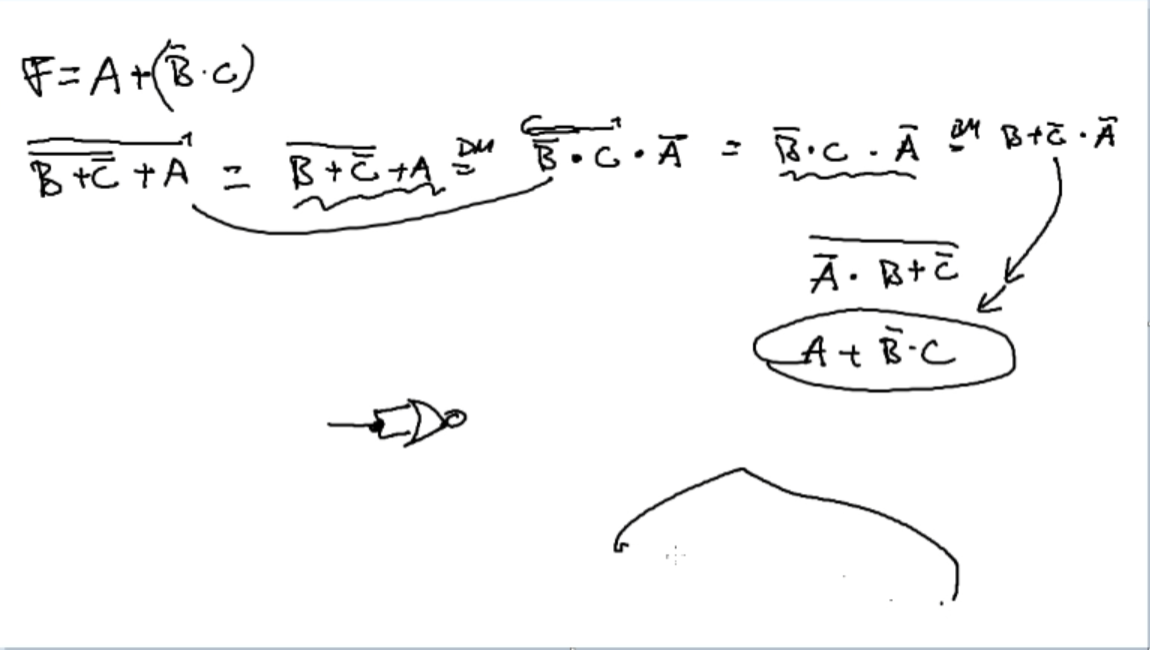 F = A + (B̄ · C)
\overline{\overline{B + C̄} + A} = \overline{B + C̄} + A \overset{DM}{=} B̄ · C · Ā = B̄ · C · Ā \overset{DM}{=} B + C̄ · Ā
\overline{Ā · B + C̄}
A + B̄ · C